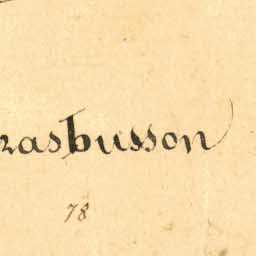 rasbusson
78